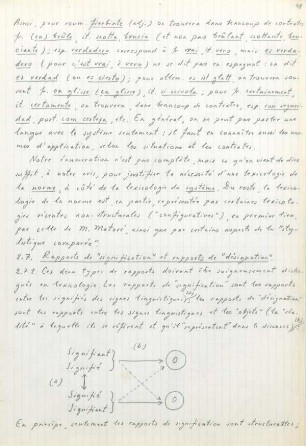 Ainsi, pour roum. fierbinte (adj.) on trouvera dans beaucoup de contextes
fr. (en) brûle, it. scotta, brucia (et non pas brûlant, scottante, bru-
ciante); esp. verdadero correspond à fr. vrai, it. vero, mais es verda-
dero (pour c'est vrai, è vero) ne se dit pas en espagnol: on dit
es verdad (ou es cierto); pour allem. es ist glatt on trouvera sou-
vent fr. on glisse (ça glisse), it. si scivola; pour fr. certainement,
it. certamente, on trouvera, dans beaucoup de contextes, esp. con seguri-
dad, port. com certeza, etc. En général, on ne peut pas parler une
langue avec le système seulement: il faut en connaître aussi les nor-
mes d'application, selon les situations et les contextes.
Notre énumération n'est pas complète, mais ce qu'on vient de dire
suffit, à notre avis, pour justifier la nécessité d'une lexicologie de
la norme, à côté de la lexicologie du système. Du reste, la lexico-
logie de la norme est, en partie, représentée par certaines lexicolo-
gies récentes non-structurales ("configuratives"), en premier lieu,
par celle de M. Matoré, ainsi que par certains aspects de la "sty-
listique comparée".
2.7. Rapports de "signification" et rapports de "désignation"
2.7.1. Ces deux types de rapports doivent être soigneusement distin-
gués en lexicologie. Les rapports de "signification" sont les rapports
entre les signifiés des signes linguistiques; les rapports de "désignation"
sont les rapports entre les signes linguistiques et les "objets" (la "réa-
lité" à laquelle ils se réfèrent et qu'ils représentent dans le discours):
(b)
Signifiant
Signifié
O
(a)
Signifié
Signifiant
O
En principe, seulement les rapports de signification sont structurables,